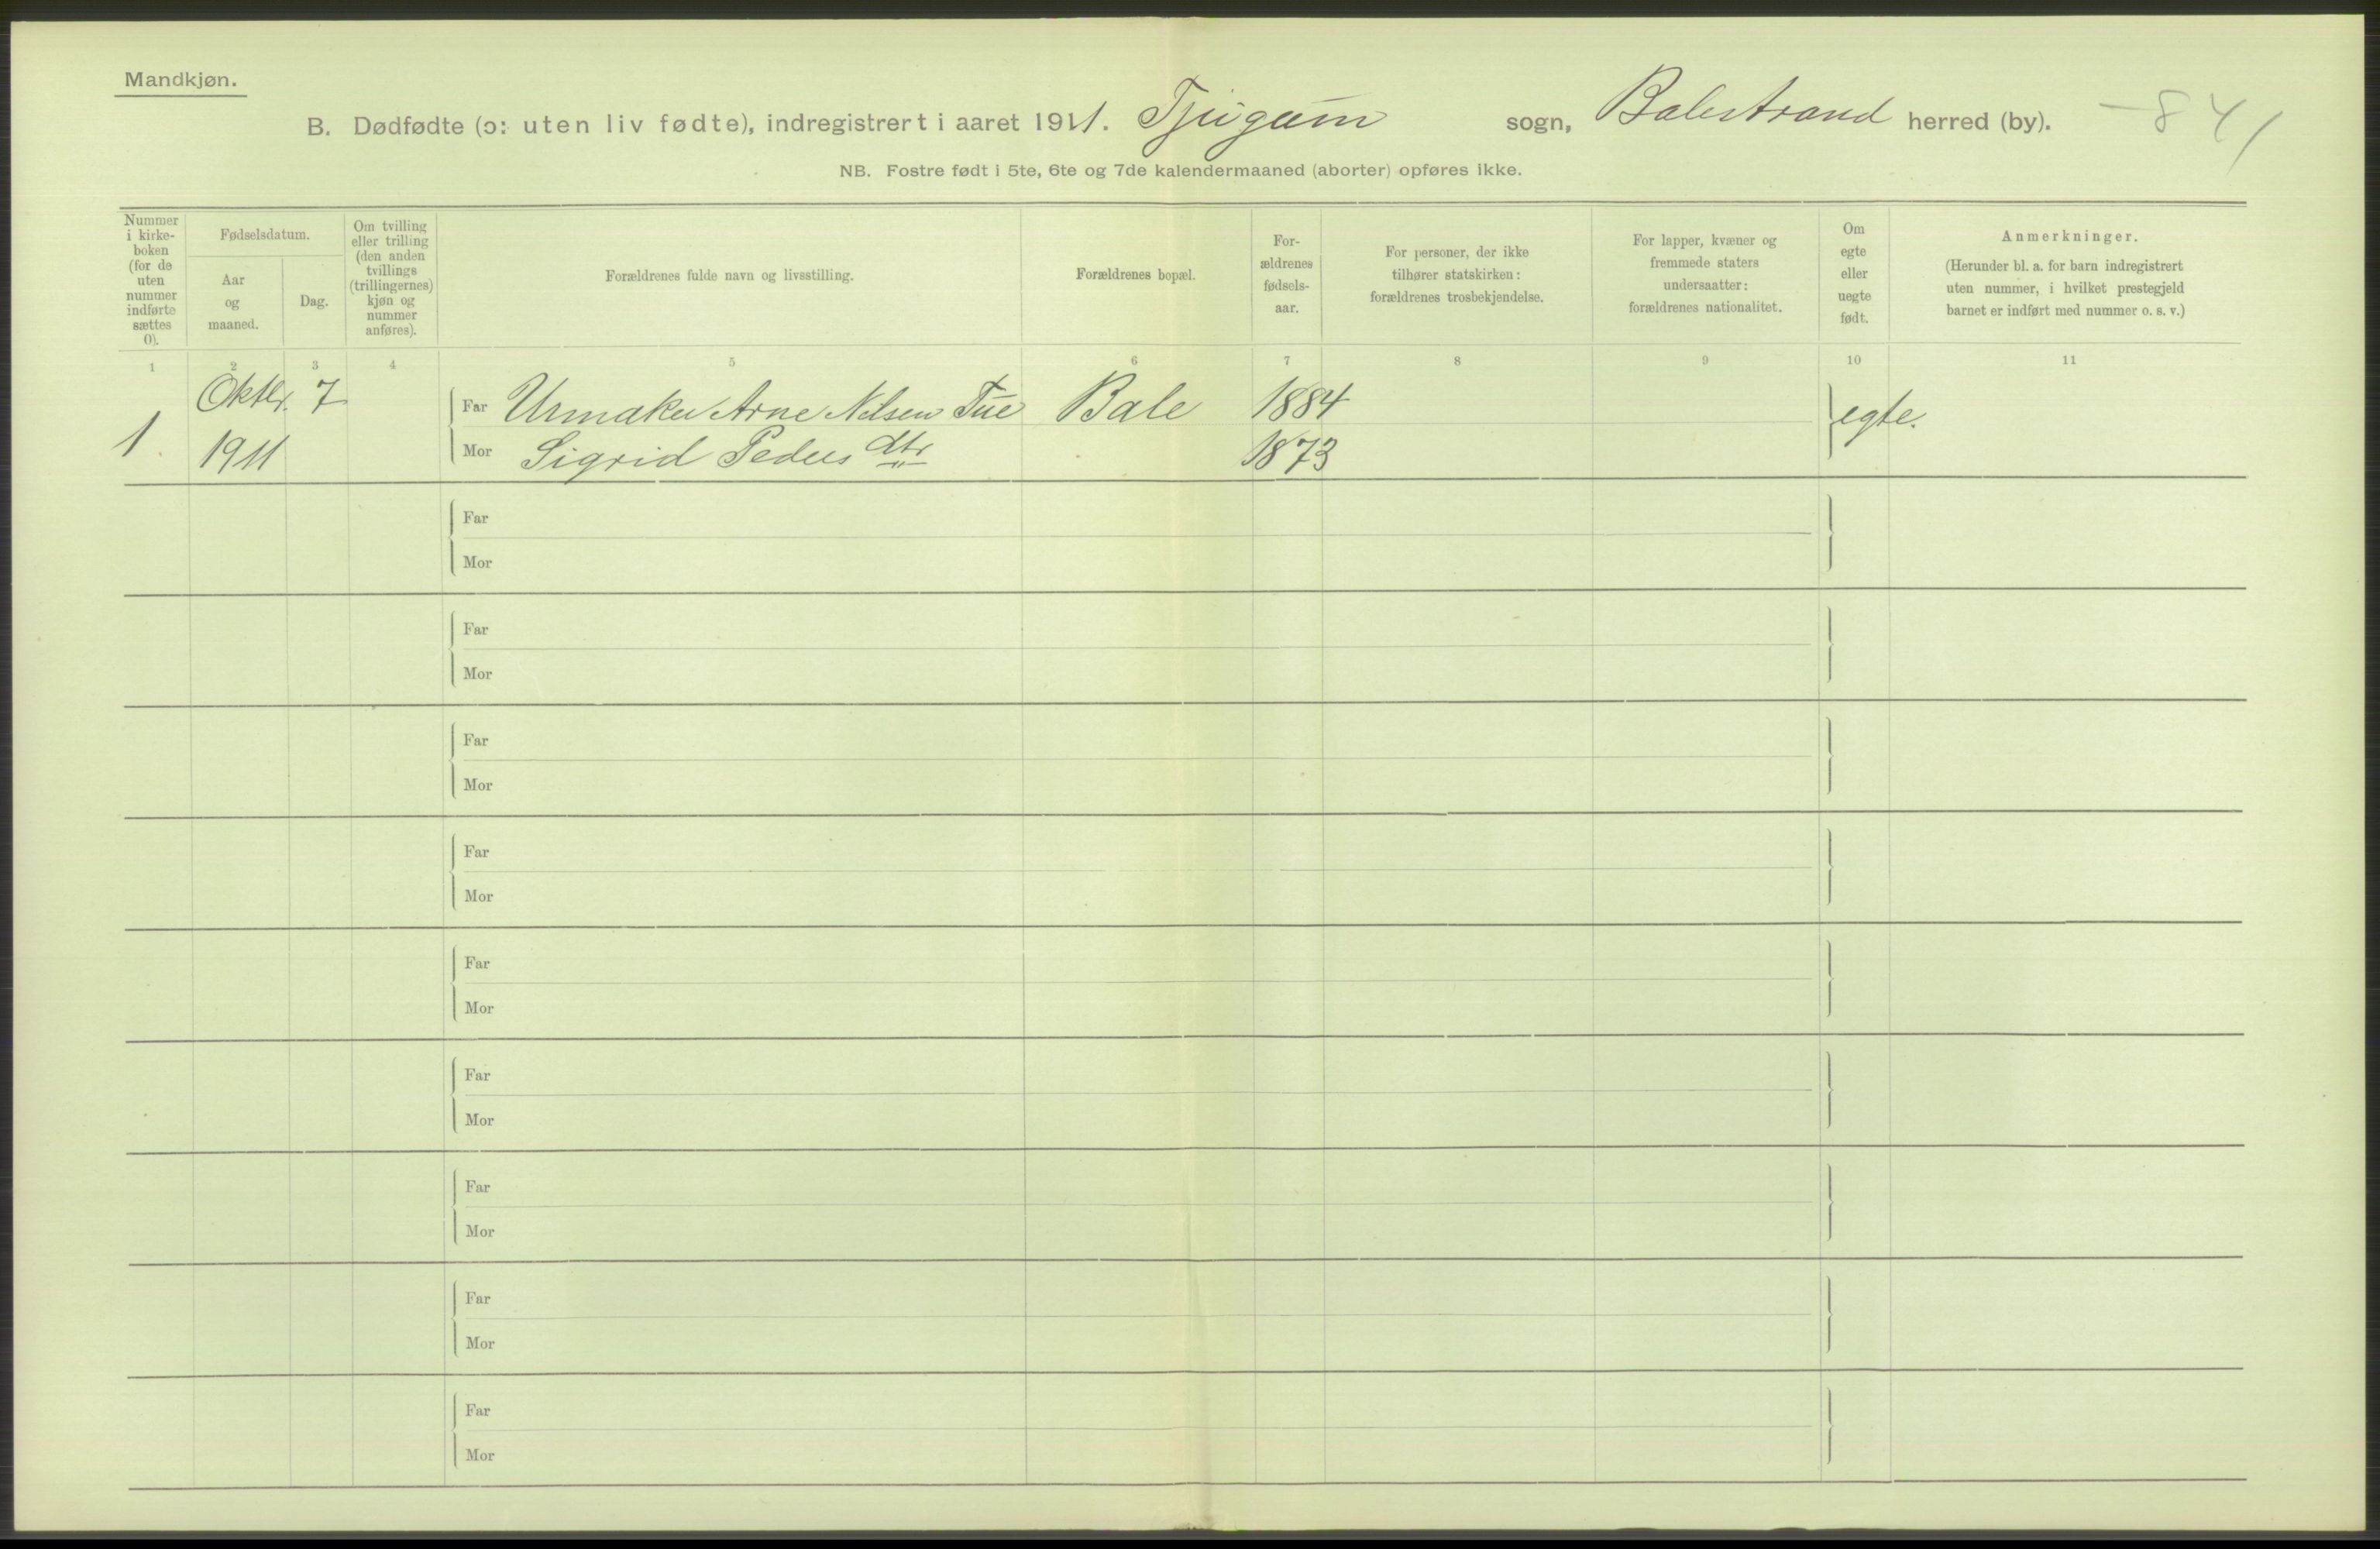 Mandkjøn.
B. Dødfødte (ɔ: uten liv fødte), indregistrert i aaret 1911. Tjugum sogn, Balestrand herred (by). — 841
NB. Fostre født i 5te, 6te og 7de kalendermaaned (aborter) opføres ikke.
Nummer
i kirke-
boken
(for de
uten
nummer
indførte
sættes
0).
Fødselsdatum.
Aar
og
maaned.
Dag.
Om tvilling
eller trilling
(den anden
tvillings
(trillingernes)
kjøn og
nummer
anføres).
Forældrenes fulde navn og livsstilling.
Forældrenes bopæl.
For-
ældrenes
fødsels-
aar.
For personer, der ikke
tilhører statskirken:
forældrenes trosbekjendelse.
For lapper, kvæner og
fremmede staters
undersaatter:
forældrenes nationalitet.
Om
egte
eller
uegte
født.
Anmerkninger.
(Herunder bl. a. for barn indregistrert
uten nummer, i hvilket prestegjeld
barnet er indført med nummer o. s. v.)
1 2 3 4 5 6 7 8 9 10 11
Oktbr. 7 Far Urmaker Arne Nilsen Tue Bale 1884 egte.
1. 1911 Mor Sigrid Peders dtr 1873
Far
Mor
Far
Mor
Far
Mor
Far
Mor
Far
Mor
Far
Mor
Far
Mor
Far
Mor
Far
Mor